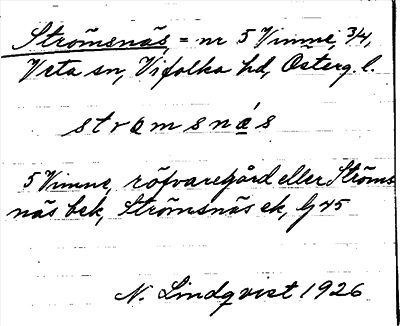 Strömsnäs, = nr 5 Vimne, 3/4,
Veta sn, Vifolka hd, Österg. l.
stromsnæs
5 Vimne, röfvaregård eller Ströms
näs bek, Strömsnäs ek, Gj 45
N. Lindqvist 1926